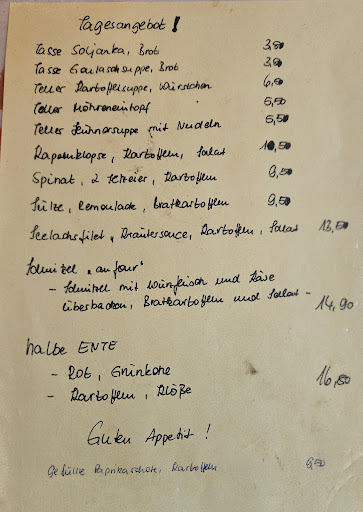 Tagesangebot!
Tasse Soljanka, Brot 3,90
Tasse Gulaschsuppe, Brot 3,90
Teller Kartoffelsuppe, Würstchen 6,50
Teller Möhreneintopf 5,50
Teller Hühnersuppe mit Nudeln 5,50
Kapernklopse, Kartoffeln, Salat 10,50
Spinat, 2 Setzeier, Kartoffeln 9,50
Sülze, Remoulade, Bratkartoffeln 9,50
Seelachsfilet, Kräutersauce, Kartoffeln, Salat 13,50
Schnitzel "au four"
- Schnitzel mit Würzfleisch und Käse
überbacken, Bratkartoffeln und Salat - 14,90
halbe ENTE
- Rot, Grünkohl 16,80
- Kartoffeln, Klöße
Guten Appetit!
Gefüllte Paprikaschote, Kartoffeln 9,50